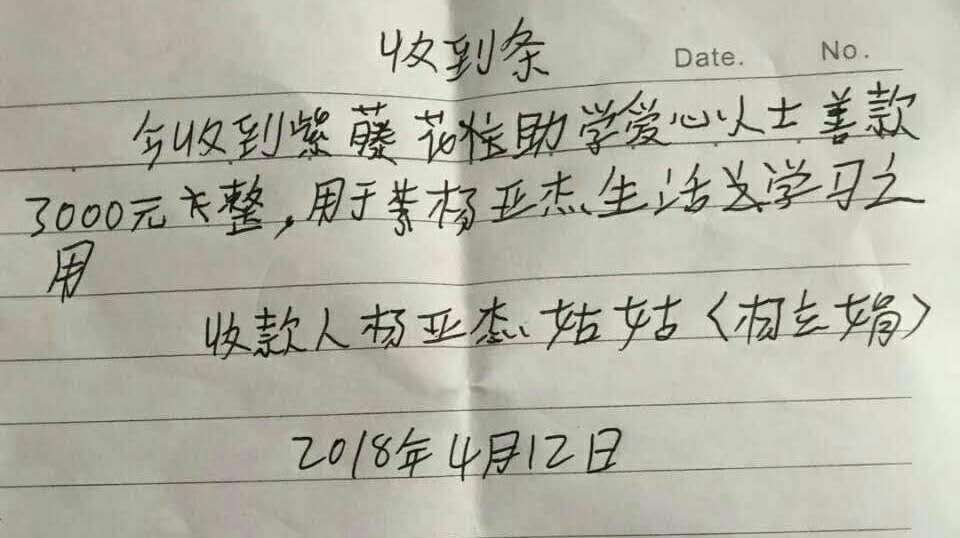 收到条
Date. No.
今收到紫藤花助学爱心人士善款
3000元整,用于杨亚杰生活及学习之
用
收款人杨亚杰姑姑(杨立娟)
2018年4月12日